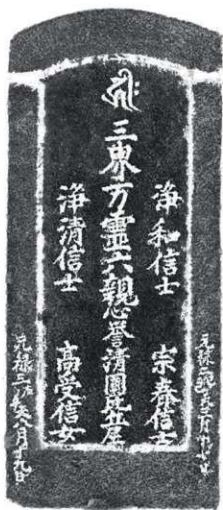 元禄二 三月十七日
浄和信士 宗春信士
三界万靈六親 誉清圓比丘尼
浄清信士 高受信女
元禄三 天八月十九日